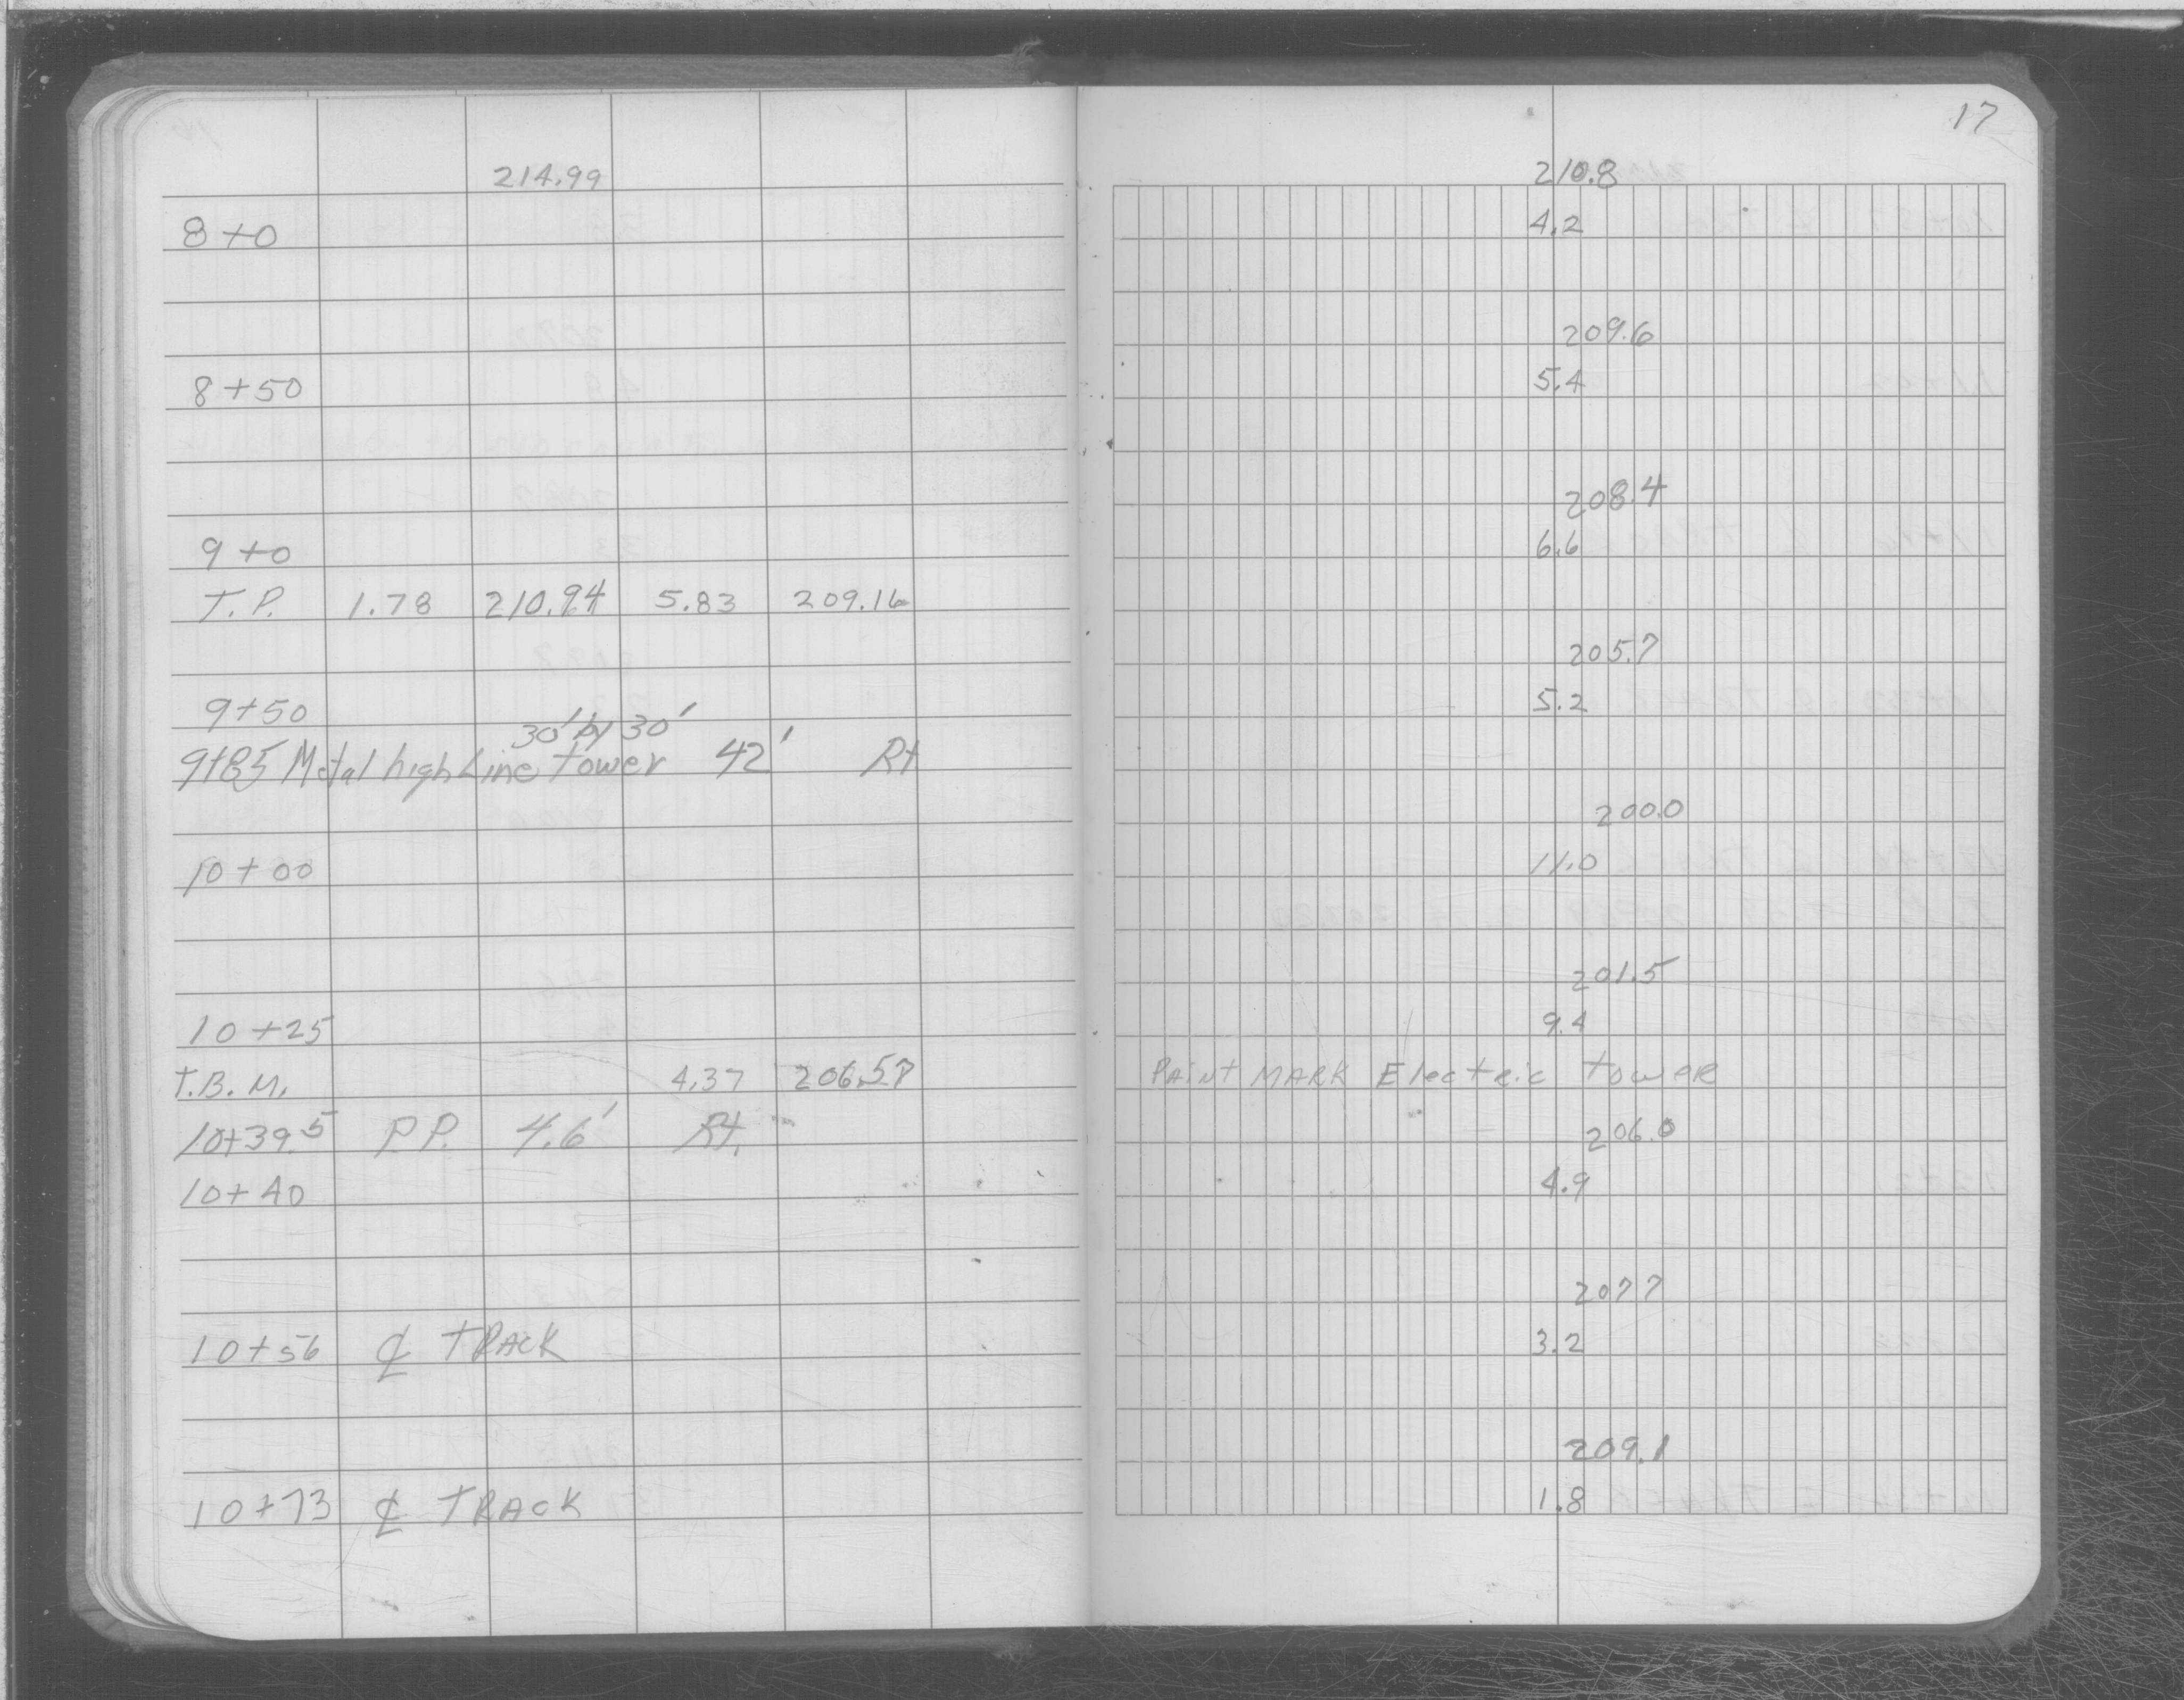 17
214.99 210.8
8+0 4.2
209.6
8+50 5.4
208.4
9+0 6.6
T.P. 1.78 210.94 5.83 209.16
205.7
9+50 5.2
30' by 30'
9+85 Metal high Line tower 42' Rt
200.0
10+00 11.0
201.5
10+25 9.4
T.B.M. 4.37 206.57 PAINT MARK Electric tower
10+39.5 P.P. 4.6' Rt. 206.0
10+40 4.9
207.7
10+56 ℄ TRACK 3.2
209.1
10+73 ℄ TRACK 1.8